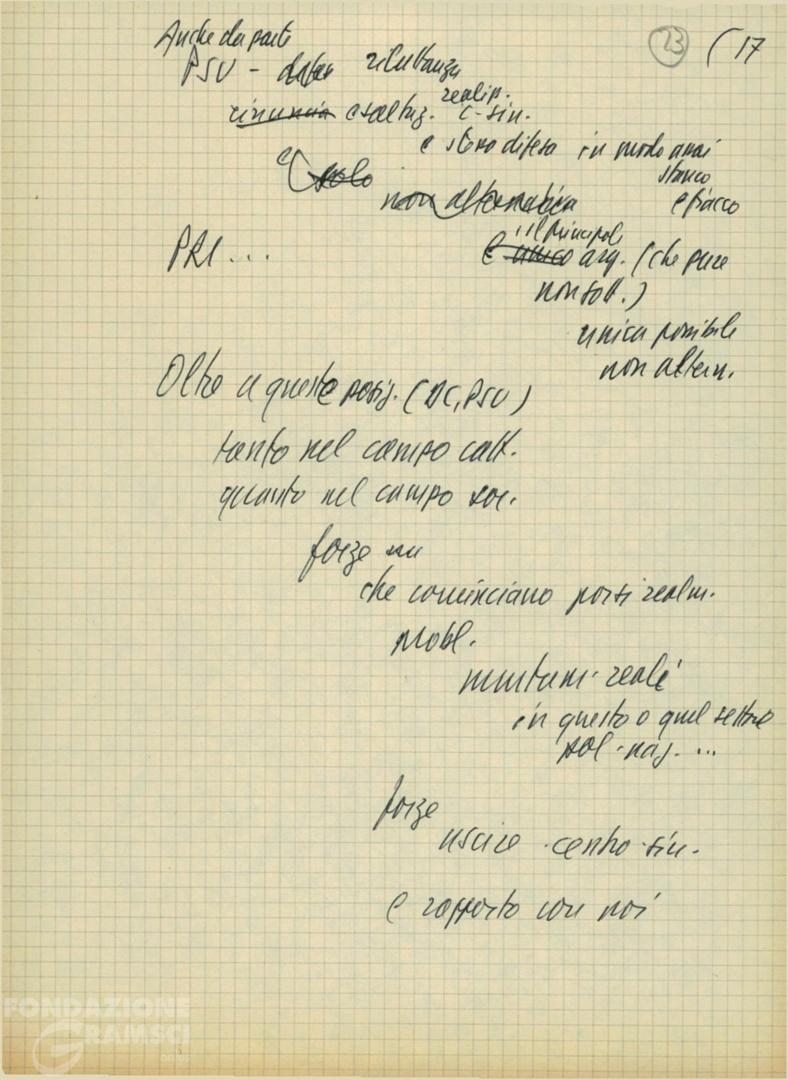 23 (17
Anche da parte
PSU - riluttanza
rinuncia esaltaz. realizz. c-sin.
e stessa difesa in modo assai
stanco
e fiacco
e (solo
non alternativa
PRI ...
il principal
e unico arg. (che pure
non sott.)
unica possibile
non altern.
Oltre a queste posiz. (DC, PSU)
tanto nel campo catt.
quanto nel campo soc.
forze
che cominciano porsi realm.
probl.
mutam. reali
in questo o quel settore
pol. naz. ...
forze
uscire centro-sin.
e rapporto con noi
FONDAZIONE
GRAMSCI